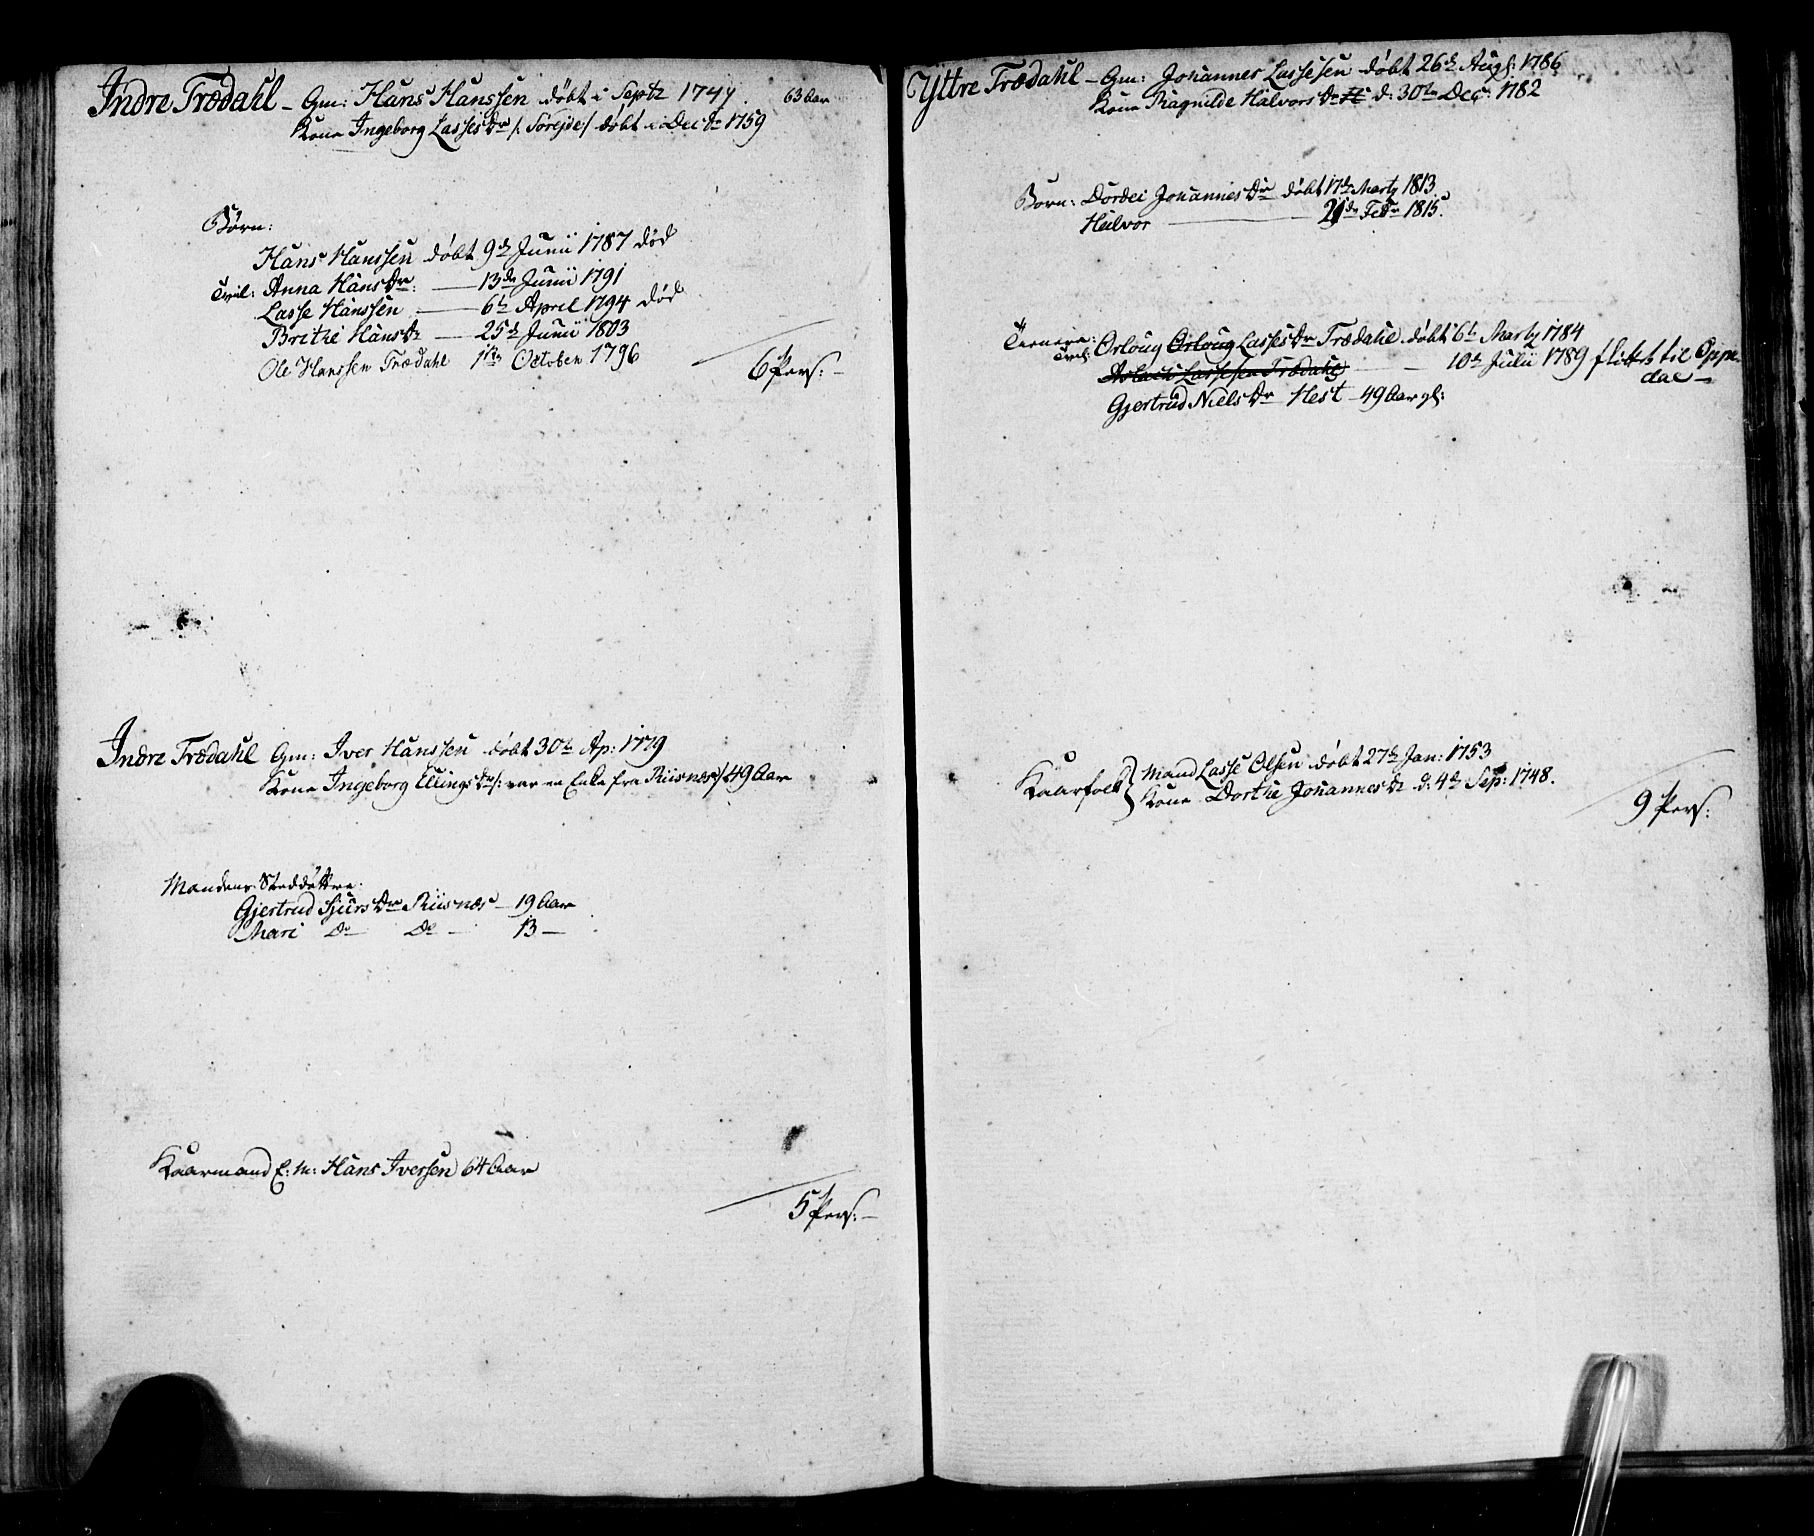 Indre Trædahl - Gm: Hans Hanssen døbt i Septr 1747. 63 Aar
Kone Ingeborg Lassesdr /: Sørejde/ døbt i Decbr 1759
Børn:
Hans Hanssen døbt 9de Junii 1787 død
Tvil: Anna Hansdr: — 13de Junii 1791
Lasse Hanssen — 6te April 1794 død
Brithe Hansdr — 25de Junii 1803
Ole Hanssen Trædahl 1ste October 1796
6 Pers: —
Indre Trædahl Gm: Iver Hanssen døbt 30te Ap: 1779
Kone Ingeborg Ellingsdr /: var en Enke fra Riisnæs/ 49 Aar
Mandens Steddøttre:
Gjertrud Sjursdr Riisnæs — 19 Aar
Mari Do Do — 13 —
Kaarmand E: M: Hans Iversen 64 Aar
5 Pers: —
Yttre Trædahl - Gm: Johannes Lassesen døbt 26de Augs: 1786
Kone Ragnilde Halvorsdr d: 30te Dec: 1782
Børn: Dordei Johannesdr døbt 17de Martz 1813
Halvor — 21de Febr 1815.
Tienere: Orloug Orloug Lassesdr Trædahl døbt 6te Martz 1784
Tvil: Lassesen Trædahl — 10de Julii 1789 flyttet til Oppe
dal —
Gjertrud Nielsdr Hest — 49 Aar gl:
Kaarfolk } Mand Lasse Olsen døbt 27de Jan: 1753
Kone Dorthe Johannesdr d: 4de Sep: 1748.
9 Pers: